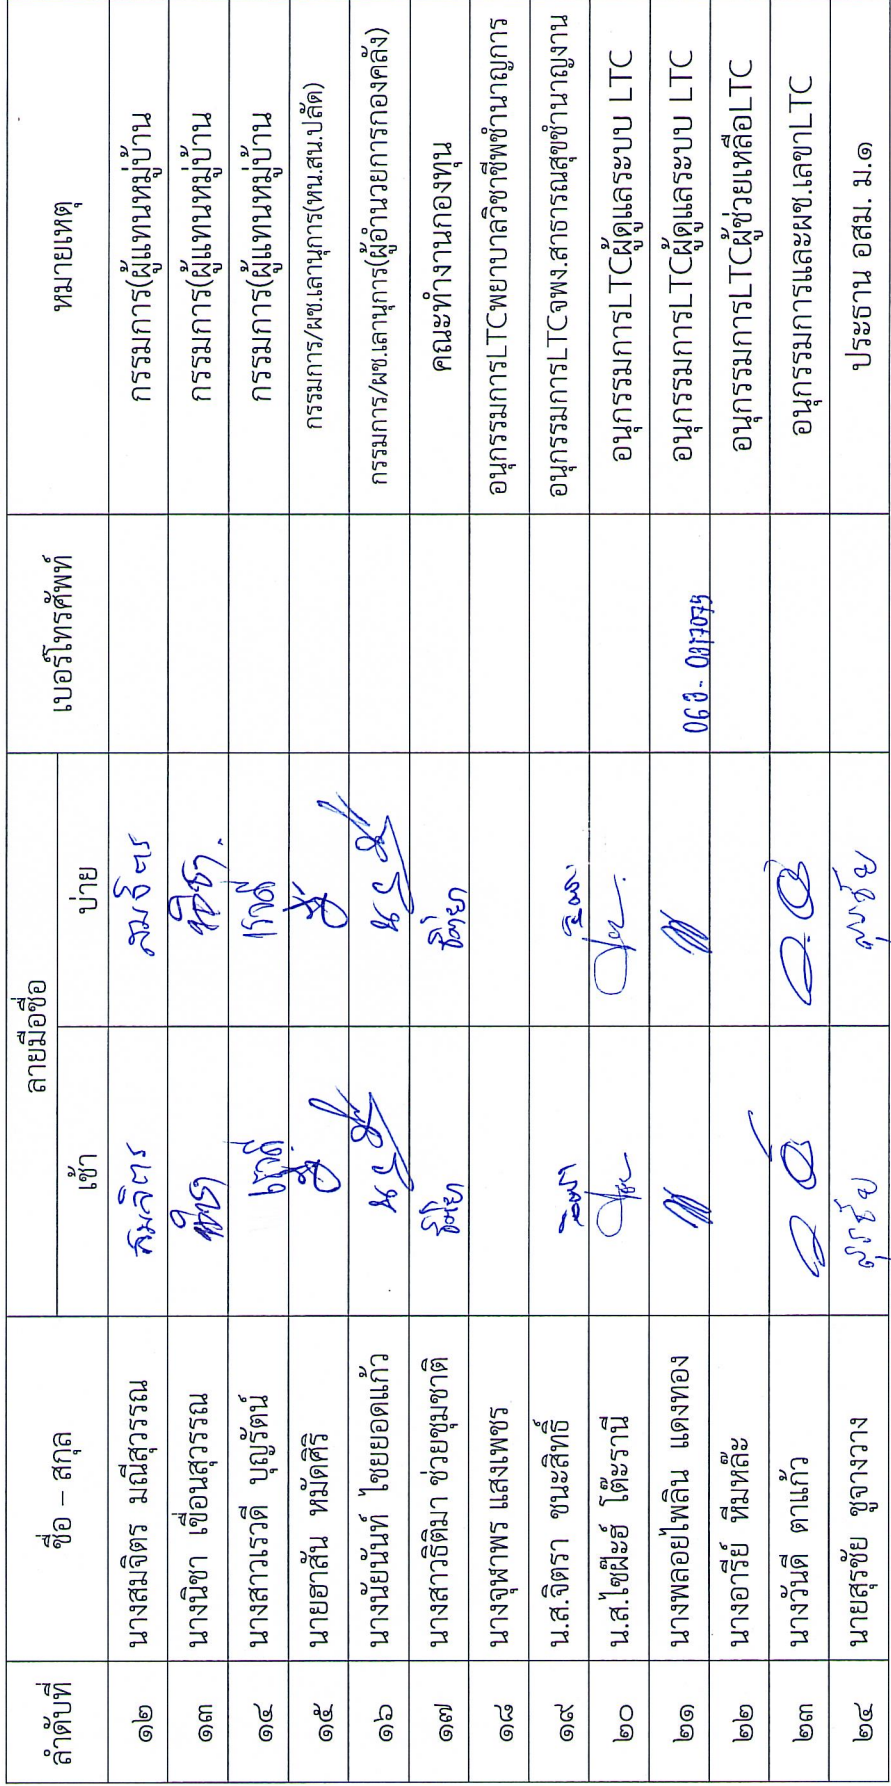 ลำดับที่ ชื่อ – สกุล ลายมือชื่อ เบอร์โทรศัพท์ หมายเหตุ
เช้า บ่าย
๑๒ นางสมจิตร มณีสุวรรณ สมจิตร สมจิตร กรรมการ(ผู้แทนหมู่บ้าน
๑๓ นางนิชา เขื่อนสุวรรณ นิชา นิชา. กรรมการ(ผู้แทนหมู่บ้าน
๑๔ นางสาวเรวดี บุญรัตน์ เรวดี เรวดี กรรมการ(ผู้แทนหมู่บ้าน
๑๕ นายฮาสัน หมัดศิริ กรรมการ/ผช.เลานุการ(หน.สน.ปลัด)
๑๖ นางนัยนันท์ ไชยยอดแก้ว กรรมการ/ผช.เลานุการ(ผู้อำนวยการกองคลัง)
๑๗ นางสาวธิติมา ช่วยชุมชาติ ธิติมา ธิติมา คณะทำงานกองทุน
๑๘ นางจุฬาพร แสงเพชร อนุกรรมการLTCพยาบาลวิชาชีพชำนาญการ
๑๙ น.ส.จิตรา ชนะสิทธิ์ อนุกรรมการLTCจพง.สาธารณสุขชำนาญงาน
๒๐ น.ส.ไซฝ๊ะฮ์ โต๊ะรานี อนุกรรมการLTCผู้ดูแลระบบ LTC
๒๑ นางพลอยไพลิน แดงทอง อนุกรรมการLTCผู้ดูแลระบบ LTC
๒๒ นางอารีย์ หีมหล๊ะ อนุกรรมการLTCผู้ช่วยเหลือLTC
๒๓ นางวันดี ตาแก้ว อนุกรรมการและผช.เลขาLTC
๒๔ นายสุรชัย ชูจางวาง สุรชัย สุรชัย ประธาน อสม. ม.๑